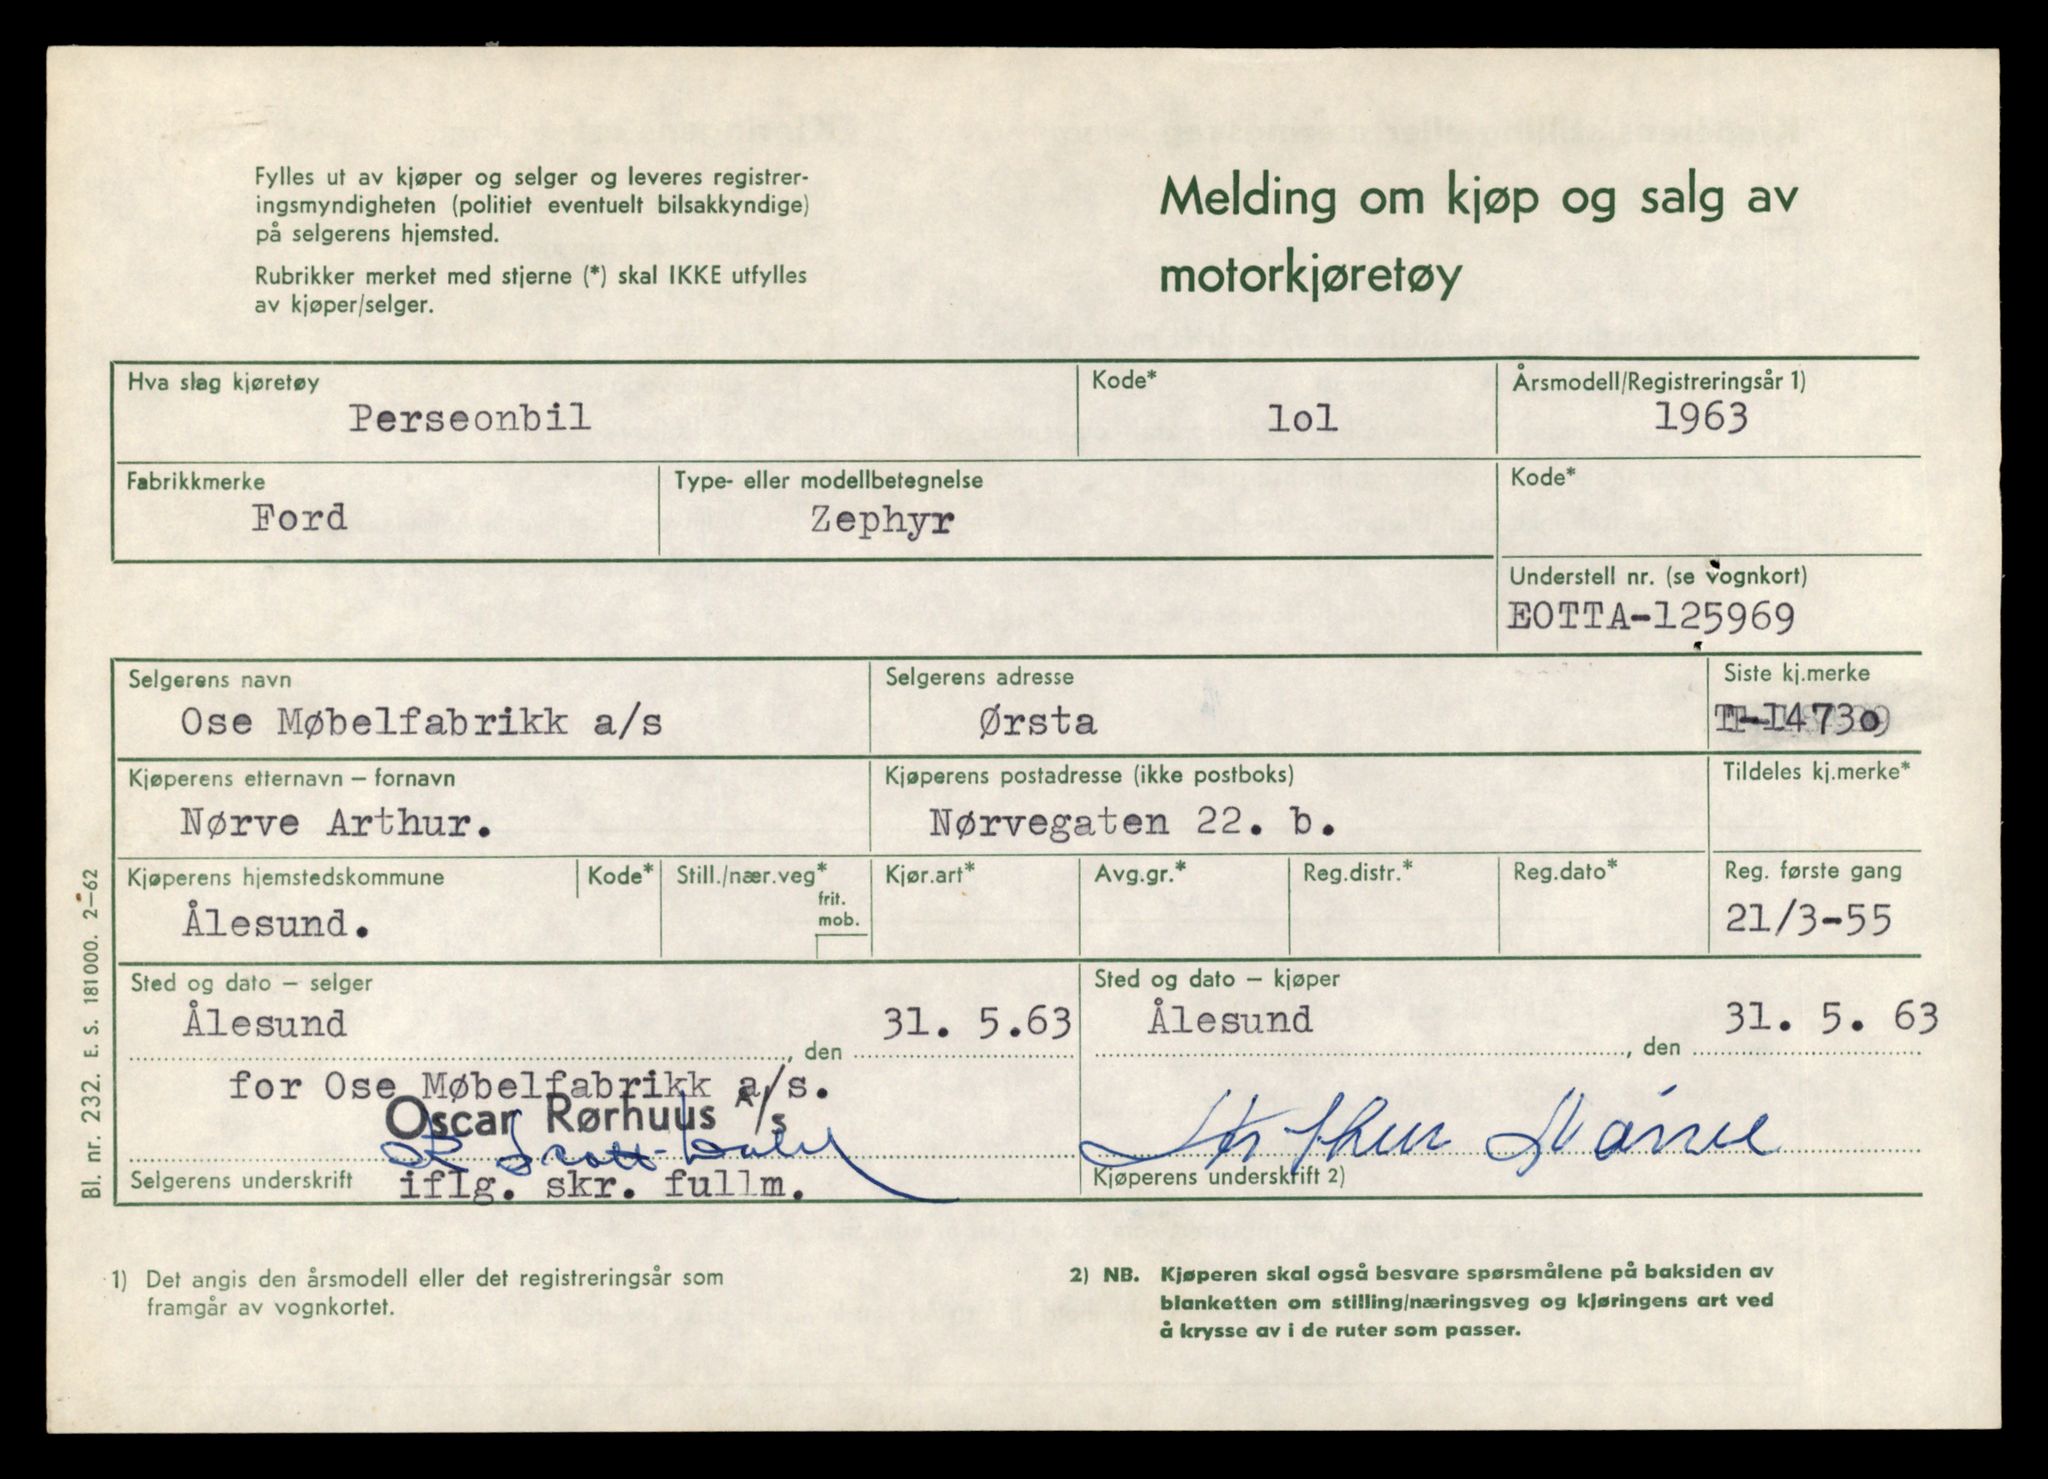 Fylles ut av kjøper og selger og leveres registrer-
ingsmyndigheten (politiet eventuelt bilsakkyndige)
på selgerens hjemsted.
Rubrikker merket med stjerne (*) skal IKKE utfylles
av kjøper/selger.
Melding om kjøp og salg av
motorkjøretøy
Hva slag kjøretøy
Perseonbil
Kode*
lol
Årsmodell/Registreringsår 1)
1963
Fabrikkmerke
Ford
Type- eller modellbetegnelse
Zephyr
Kode*
Understell nr. (se vognkort)
EOTTA-125969
Selgerens navn
Ose Møbelfabrikk a/s
Selgerens adresse
Ørsta
Siste kj.merke
T-1473o
Kjøperens etternavn – fornavn
Nørve Arthur.
Kjøperens postadresse (ikke postboks)
Nørvegaten 22. b.
Tildeles kj.merke*
Kjøperens hjemstedskommune
Ålesund.
Kode*
Still./nær.veg*
frit.
mob.
Kjør.art*
Avg.gr.*
Reg.distr.*
Reg.dato*
Reg. første gang
21/3-55
Sted og dato – selger
Ålesund , den 31. 5.63
for Ose Møbelfabrikk a/s.
Oscar Rørhuus A/s
Selgerens underskrift iflg. skr. fullm.
Sted og dato – kjøper
Ålesund , den 31. 5. 63
Arthur Nørve
Kjøperens underskrift 2)
Bl. nr. 232. E. S. 181000. 2–62
1) Det angis den årsmodell eller det registreringsår som
framgår av vognkortet.
2) NB. Kjøperen skal også besvare spørsmålene på baksiden av
blanketten om stilling/næringsveg og kjøringens art ved
å krysse av i de ruter som passer.